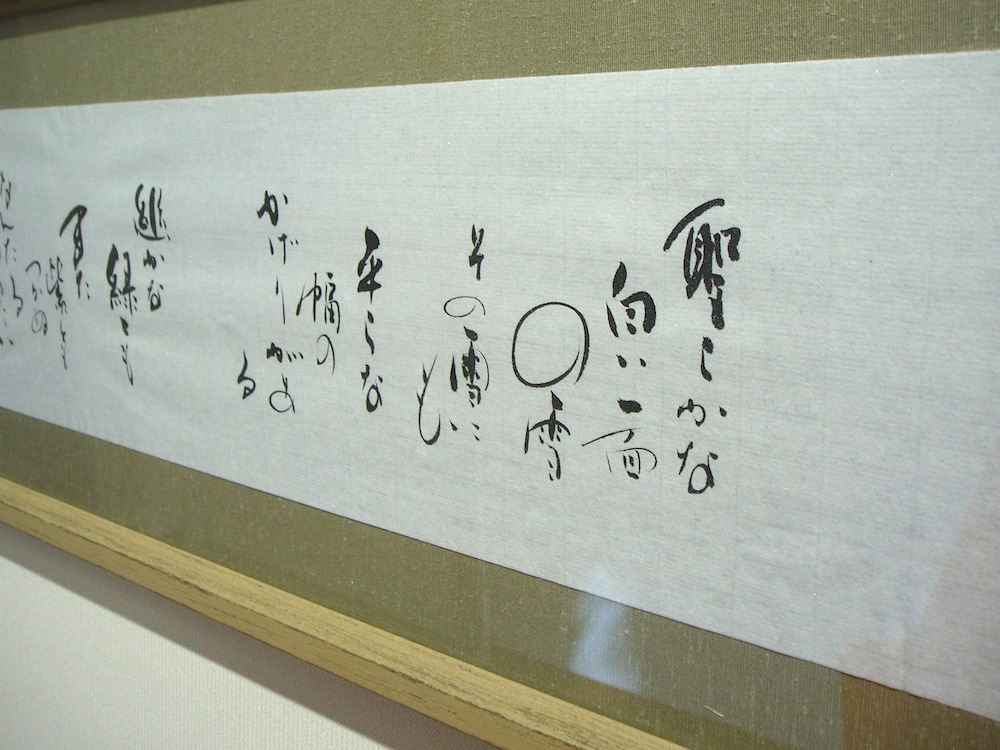 聖らかな
白い一面
の雪
その雪に
も
平らな
幅の
かげりがあ
る
緑とも
また
紫とも
つかぬ